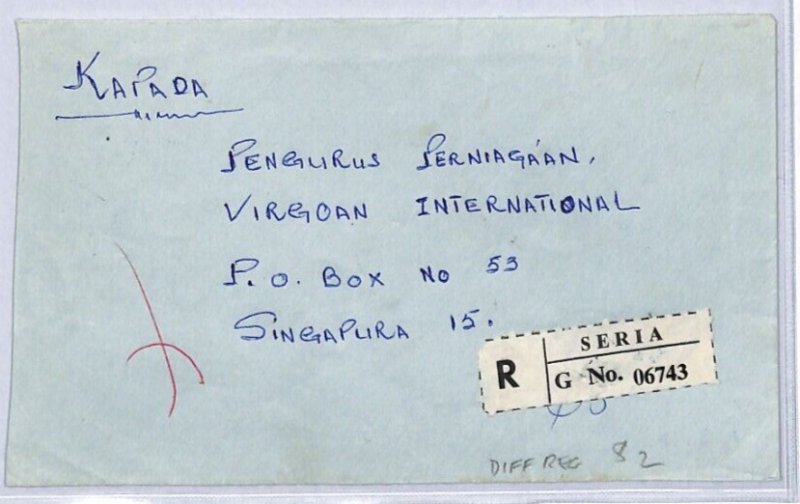 KAPADA
PENGURUS PERNIAGA'AN,
VIRGOAN INTERNATIONAL
P.O. BOX NO 53
SINGAPURA 15.
SERIA
R G No. 06743
DIFF REG 82